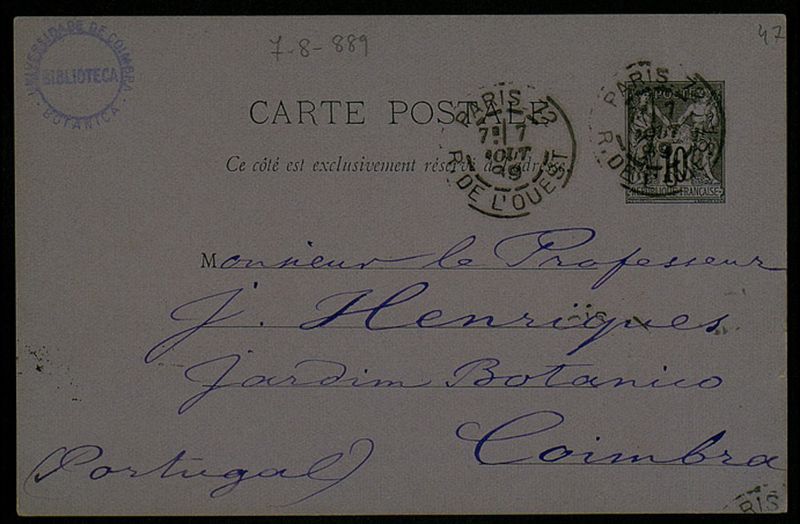 47
7-8-889
UNIVERSIDADE DE COIMBRA
BIBLIOTECA
BOTANICA
CARTE POSTALE
Ce côté est exclusivement réservé à l'adresse.
PARIS
7E 7
AOUT
89
R. DE L'OUEST
PARIS
7
AOUT
89
R. DE
10
REPUBLIQUE FRANÇAISE
Monsieur le Professeur
J. Henriques
Jardim Botanico
Coimbra
(Portugal)
RIS